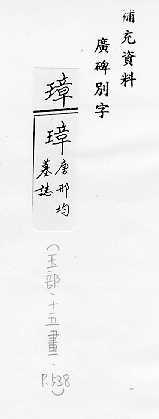 補充資料
廣碑別字
璋
璋
唐邢均
墓誌
(玉部·十五畫·
P.538)